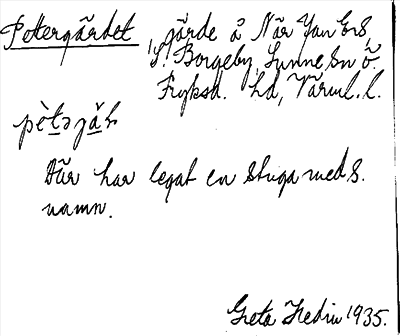 Pottergärdet, gärde å När Jan Ers,
S. Borgeby, Sunne sn Ö.
Fryksd. hd, Värml. l.
pètəjäṭ
Där har legat en stuga med s.
namn.
Greta Hedin 1935.